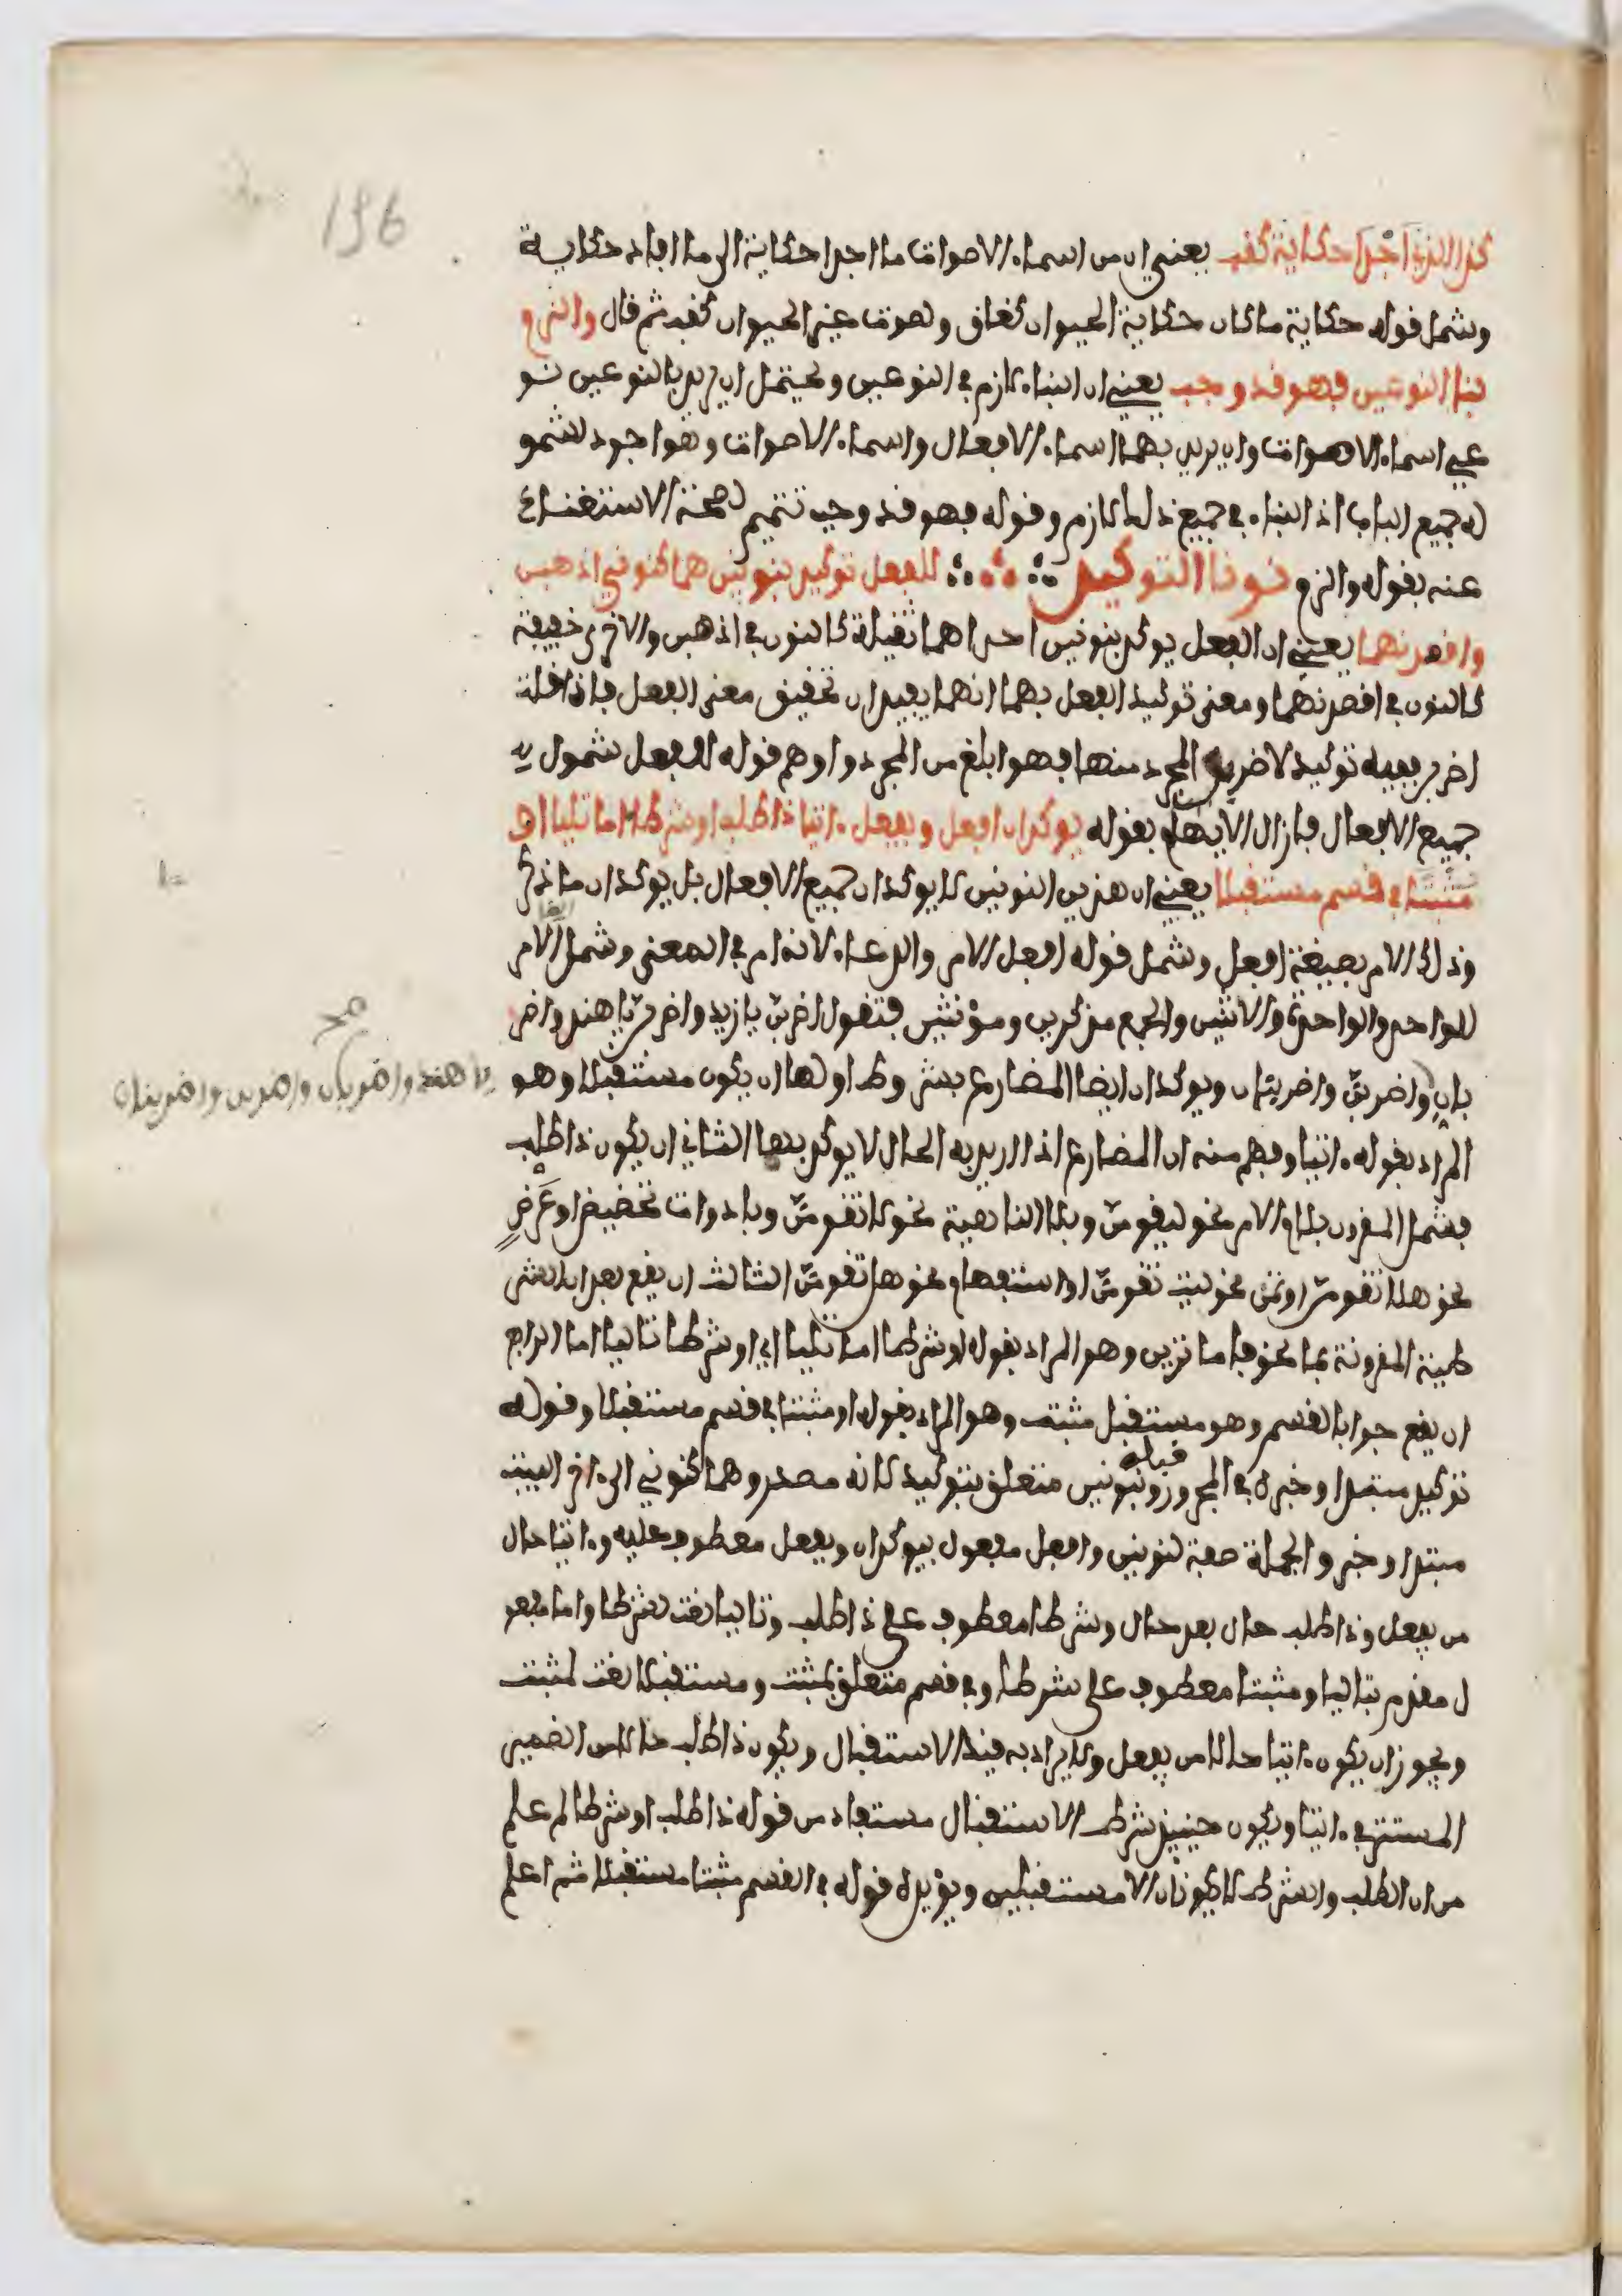 196
كذا الذي اجدا حكاية كقب يعني ان من اسماء الاصوات ما اجدا حكاية اي ما افاد حكاية
وشمل قوله حكاية ما كان حكاية الحيوان كغاق وصوت غير الحيوان كقب ثم قال والزم
بنا النوعين فهو قد وجب يعني ان البناء لازم في النوعين ويحتمل ان يريد بالنوعين نو
عي اسماء الاصوات وان يريد بهما اسماء الافعال واسماء الاصوات وهو اجود لشمو
له جميع الباب اذ البناء في جميع ذلك لازم وقوله فهو قد وجب تتميم لصحة الاستغناء
عنه بقوله والزم نونا التوكيد للفعل توكيد بنونين هما كنوني اذهبن
واقصدنهما يعني ان الفعل يوكد بنونين احداهما ثقيلة كالنون في اذهبن والاخرى خفيفة
كالنون في اقصدنهما ومعنى توكيد الفعل بهما انهما يفيدان تحقيق معنى الفعل فاذا قلت
اضربن ففيه توكيد لاضرب المجرد منها فهو ابلغ من المجرد واوهم قوله للفعل شموليه
جميع الافعال فازال الايهام بقوله يوكدان افعل ويفعل ءاتيا ذا طلب او شرطا اما تاليا او
مثبتا في قسم مستقبلا يعني ان هذين النونين لا يوكدان جميع الافعال بل يوكدان ما ذكر
وذلك الامر بصيغة افعل وشمل قوله افعل الامر والدعاء لانه امر في المعنى وشمل ايضا الامر
للواحد والواحدة والاثنين والجمع مذكرين ومؤنثين فتقول اضربن يا زيد واضربن يا هند واضر
بان واضربن واضربنان ويوكدان ايضا المضارع بشروط اولها ان يكون مستقبلا وهو
صح
يا هند واضربان واضربن واضربنان
المراد بقوله ءاتيا وفهم منه ان المضارع اذا اريد به الحال لا يوكد بهما الثاني ان يكون ذا طلب
فشمل المقرون بلام الامر نحو ليقومن وبلا الناهية نحو لا تقومن وبادوات تحضيض او عرض
نحو هلا تقومن او تمن نحو ليت تقومن او استفهام نحو هل تقومن الثالث ان يقع بعد ان الشر
طية المقرونة بما نحو فاما ترين وهو المراد بقوله او شرطا اما تاليا اي او شرطا تاليا اما الرابع
ان يقع جوابا لقسم وهو مستقبل مثبت وهو المراد بقوله او مثبتا في قسم مستقبلا وقوله
توكيد مبتدا وخبره في المجرور قبله وبنونين متعلق بتوكيد لانه مصدر وهما كنوني الى ءاخر البيت
مبتدا وخبر والجملة صفة لنونين وافعل مفعول بيوكدان ويفعل معطوف عليه وءاتيا حال
من يفعل وذا طلب حال بعد حال وشرطا معطوف على ذا طلب وتاليا نعت لشرطا واما مفعو
ل مقدم بتاليا ومثبتا معطوف على شرطا وفي قسم متعلق بمثبت ومستقبلا نعت لمثبت
ويجوز ان يكون ءاتيا حالا من يفعل ولا يراد به قيد الاستقبال ويكون ذا طلب حالا من الضمير
المستتر في ءاتيا ويكون حينئذ شرط الاستقبال مستفاد من قوله ذا طلب او شرطا لم علم
من ان الطلب والشرط لا يكونان الا مستقبلين ويؤيده قوله في القسم مثبتا مستقبلا ثم اعلم